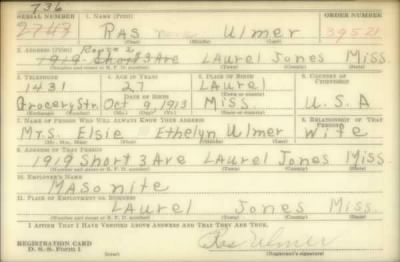 736
SERIAL NUMBER 1. NAME (PRINT) ORDER NUMBER
2747 RAS none Ulmer 39521
(First) (Middle) (Last)
2. ADDRESS (PRINT) Route 2
1919 Short 3 Ave LAurel Jones Miss.
(Number and street or R. F. D. number) (Town) (County) (State)
3. TELEPHONE 4. AGE IN YEARS 5. PLACE OF BIRTH 6. COUNTRY OF CITIZENSHIP
1431 27 LAurel
DATE OF BIRTH (Town or county)
Grocery Str. Oct 9, 1913 Miss. U.S.A
(Exchange) (Number) (Mo.) (Day) (Yr.) (State or country)
7. NAME OF PERSON WHO WILL ALWAYS KNOW YOUR ADDRESS 8. RELATIONSHIP OF THAT PERSON
Mrs. Elsie Ethelyn Ulmer Wife
(Mr., Mrs., Miss) (First) (Middle) (Last)
9. ADDRESS OF THAT PERSON
1919 Short 3 Ave LAurel Jones Miss.
(Number and street or R. F. D. number) (Town) (County) (State)
10. EMPLOYER'S NAME
MASonite
11. PLACE OF EMPLOYMENT OR BUSINESS
LAurel Jones Miss.
(Number and street or R. F. D. number) (Town) (County) (State)
I AFFIRM THAT I HAVE VERIFIED ABOVE ANSWERS AND THAT THEY ARE TRUE.
REGISTRATION CARD
D. S. S. Form 1
Ras Ulmer
(Registrant's signature)